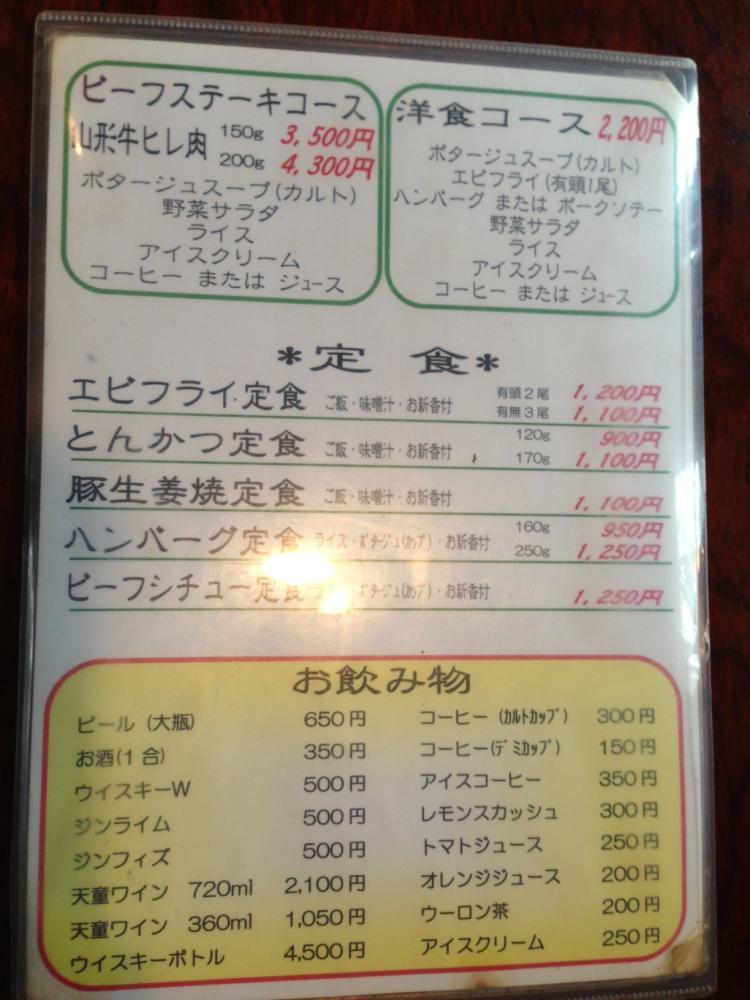 ビーフステーキコース
山形牛ヒレ肉 150g 3,500円
200g 4,300円
ポタージュスープ(カルト)
野菜サラダ
ライス
アイスクリーム
コーヒー または ジュース
洋食コース 2,200円
ポタージュスープ(カルト)
エビフライ(有頭1尾)
ハンバーグ または ポークソテー
野菜サラダ
ライス
アイスクリーム
コーヒー または ジュース
*定 食*
エビフライ定食 ご飯・味噌汁・お新香付 有頭2尾 1,200円
有無3尾 1,100円
とんかつ定食 ご飯・味噌汁・お新香付 120g 900円
170g 1,100円
豚生姜焼定食 ご飯・味噌汁・お新香付 1,100円
ハンバーグ定食 ライス・ポタージュ(カップ)・お新香付 160g 950円
250g 1,250円
ビーフシチュー定食 ライス・ポタージュ(カップ)・お新香付 1,250円
お飲み物
ビール (大瓶) 650円
お酒(1合) 350円
ウイスキーW 500円
ジンライム 500円
ジンフィズ 500円
天童ワイン 720ml 2,100円
天童ワイン 360ml 1,050円
ウイスキーボトル 4,500円
コーヒー (カルトカップ) 300円
コーヒー(デミカップ) 150円
アイスコーヒー 350円
レモンスカッシュ 300円
トマトジュース 250円
オレンジジュース 200円
ウーロン茶 200円
アイスクリーム 250円